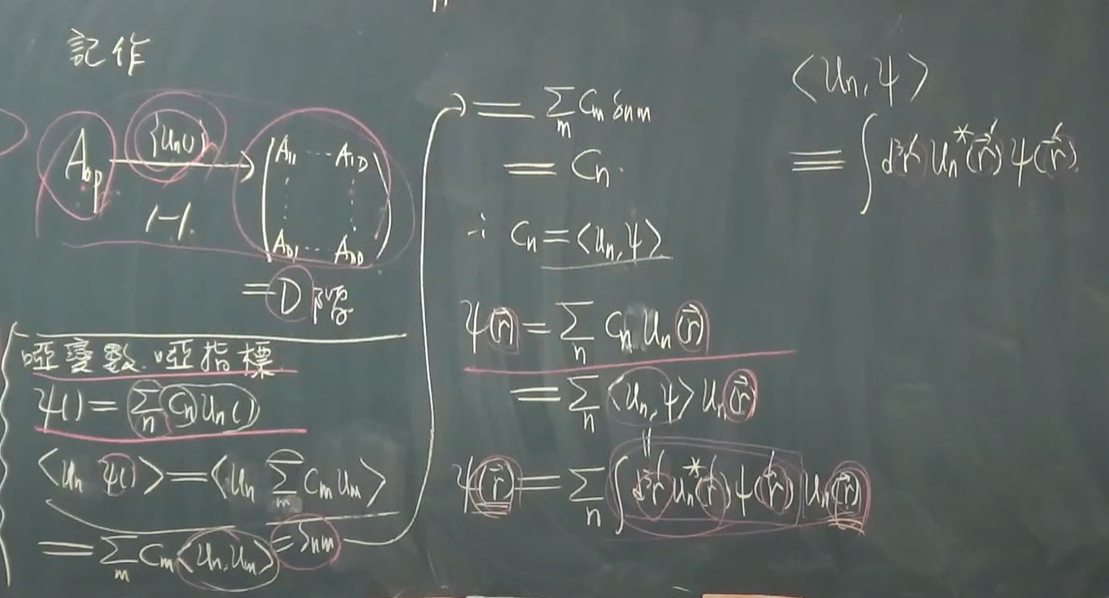 記作
A_{op} \xrightarrow[1-1]{\{u_n()\}} \begin{pmatrix} A_{11} & \cdots & A_{1D} \\ \vdots & & \vdots \\ A_{D1} & \cdots & A_{DD} \end{pmatrix}
= D 階
啞變數.啞指標
ψ() = \sum_n C_n u_n()
⟨u_n ψ()⟩ = ⟨u_n \sum_m C_m u_m⟩
= \sum_m C_m ⟨u_n, u_m⟩ = δ_{nm}
= \sum_m C_m δ_{nm}
= C_n.
∴ C_n = ⟨u_n, ψ⟩
ψ(\vec{r}) = \sum_n C_n u_n(\vec{r})
= \sum_n ⟨u_n, ψ⟩ u_n(\vec{r})
ψ(\vec{r}) = \sum_n ∫ d^3r' u_n^*(\vec{r}') ψ(\vec{r}') u_n(\vec{r})
⟨u_n, ψ⟩
≡ ∫ d^3r' u_n^*(\vec{r}') ψ(\vec{r}').